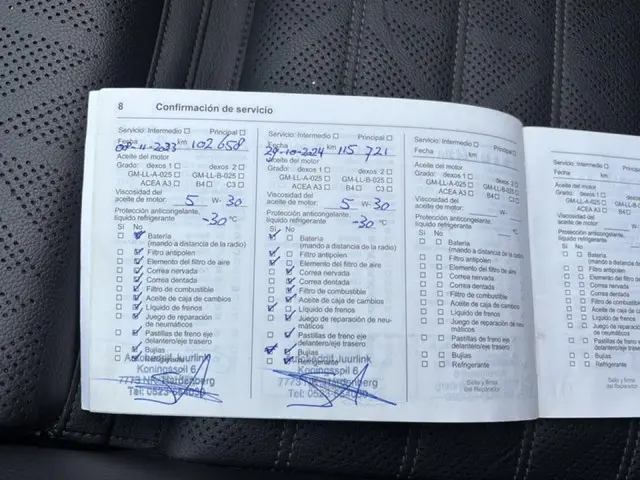 8 Confirmación de servicio
Servicio: Intermedio Principal
Fecha 09-11-2023 km 102 658
Aceite del motor
Grado: dexos 1 dexos 2
GM-LL-A-025 GM-LL-B-025
ACEA A3 B4 C3
Viscosidad del
aceite de motor: 5 W- 30
Protección anticongelante,
líquido refrigerante -30 °C
Sí No
Batería
(mando a distancia de la radio)
Filtro antipolen
Elemento del filtro de aire
Correa nervada
Correa dentada
Filtro de combustible
Aceite de caja de cambios
Líquido de frenos
Juego de reparación
de neumáticos
Pastillas de freno eje
delantero/eje trasero
Bujías
Refrigerante
Autobedrijf Juurlink
Koningsspil 6
7773 NK Hardenberg
Tel: 0523
Servicio: Intermedio Principal
Fecha 29-10-2024 km 115 721
Aceite del motor
Grado: dexos 1 dexos 2
GM-LL-A-025 GM-LL-B-025
ACEA A3 B4 C3
Viscosidad del
aceite de motor: 5 W- 30
Protección anticongelante,
líquido refrigerante -30 °C
Sí No
Batería
(mando a distancia de la radio)
Filtro antipolen
Elemento del filtro de aire
Correa nervada
Correa dentada
Filtro de combustible
Aceite de caja de cambios
Líquido de frenos
Juego de reparación de neu-
máticos
Pastillas de freno eje
delantero/eje trasero
Bujías
Refrigerante
Autobedrijf Juurlink
Koningsspil 6
7773 NK Hardenberg
Tel: 0523
Servicio: Intermedio Principal
Fecha km
Aceite del motor
Grado: dexos 1 dexos 2
GM-LL-A-025 GM-LL-B-025
ACEA A3 B4 C3
Viscosidad del
aceite de motor: W-
Protección anticongelante,
líquido refrigerante °C
Sí No
Batería
(mando a distancia de la radio)
Filtro antipolen
Elemento del filtro de aire
Correa nervada
Correa dentada
Filtro de combustible
Aceite de caja de cambios
Líquido de frenos
Juego de reparación de neu-
máticos
Pastillas de freno eje
delantero/eje trasero
Bujías
Refrigerante
Sello y firma
del Reparador
Servicio: Intermedio
Fecha km
Aceite del motor
Grado: dexos 1
GM-LL-A-025
ACEA A3
Viscosidad del
aceite de motor:
Protección anticongelante,
líquido refrigerante
Sí No
Batería
(mando a distancia
Filtro antipolen
Elemento del filtro
Correa nervada
Correa dentada
Filtro de combustible
Aceite de caja de
Líquido de frenos
Juego de reparación
de neumáticos
Pastillas de freno
delantero/eje
Bujías
Refrigerante
Sello y firma
del Reparador